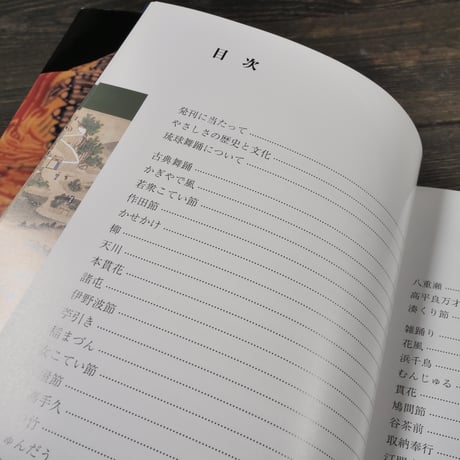 目次
発刊に当たって
やさしさの歴史と文化
琉球舞踊について
古典舞踊
かぎやで風
若衆こてい節
作田節
かせかけ
柳
天川
本貫花
諸屯
伊野波節
苧引き
稲まづん
女こてい節
節
高手久
行
ゅんだう
八重瀬
高平良万才
湊くり節
雑踊り
花風
浜千鳥
むんじゅる
貫花
鳩間節
谷茶前
取納奉行